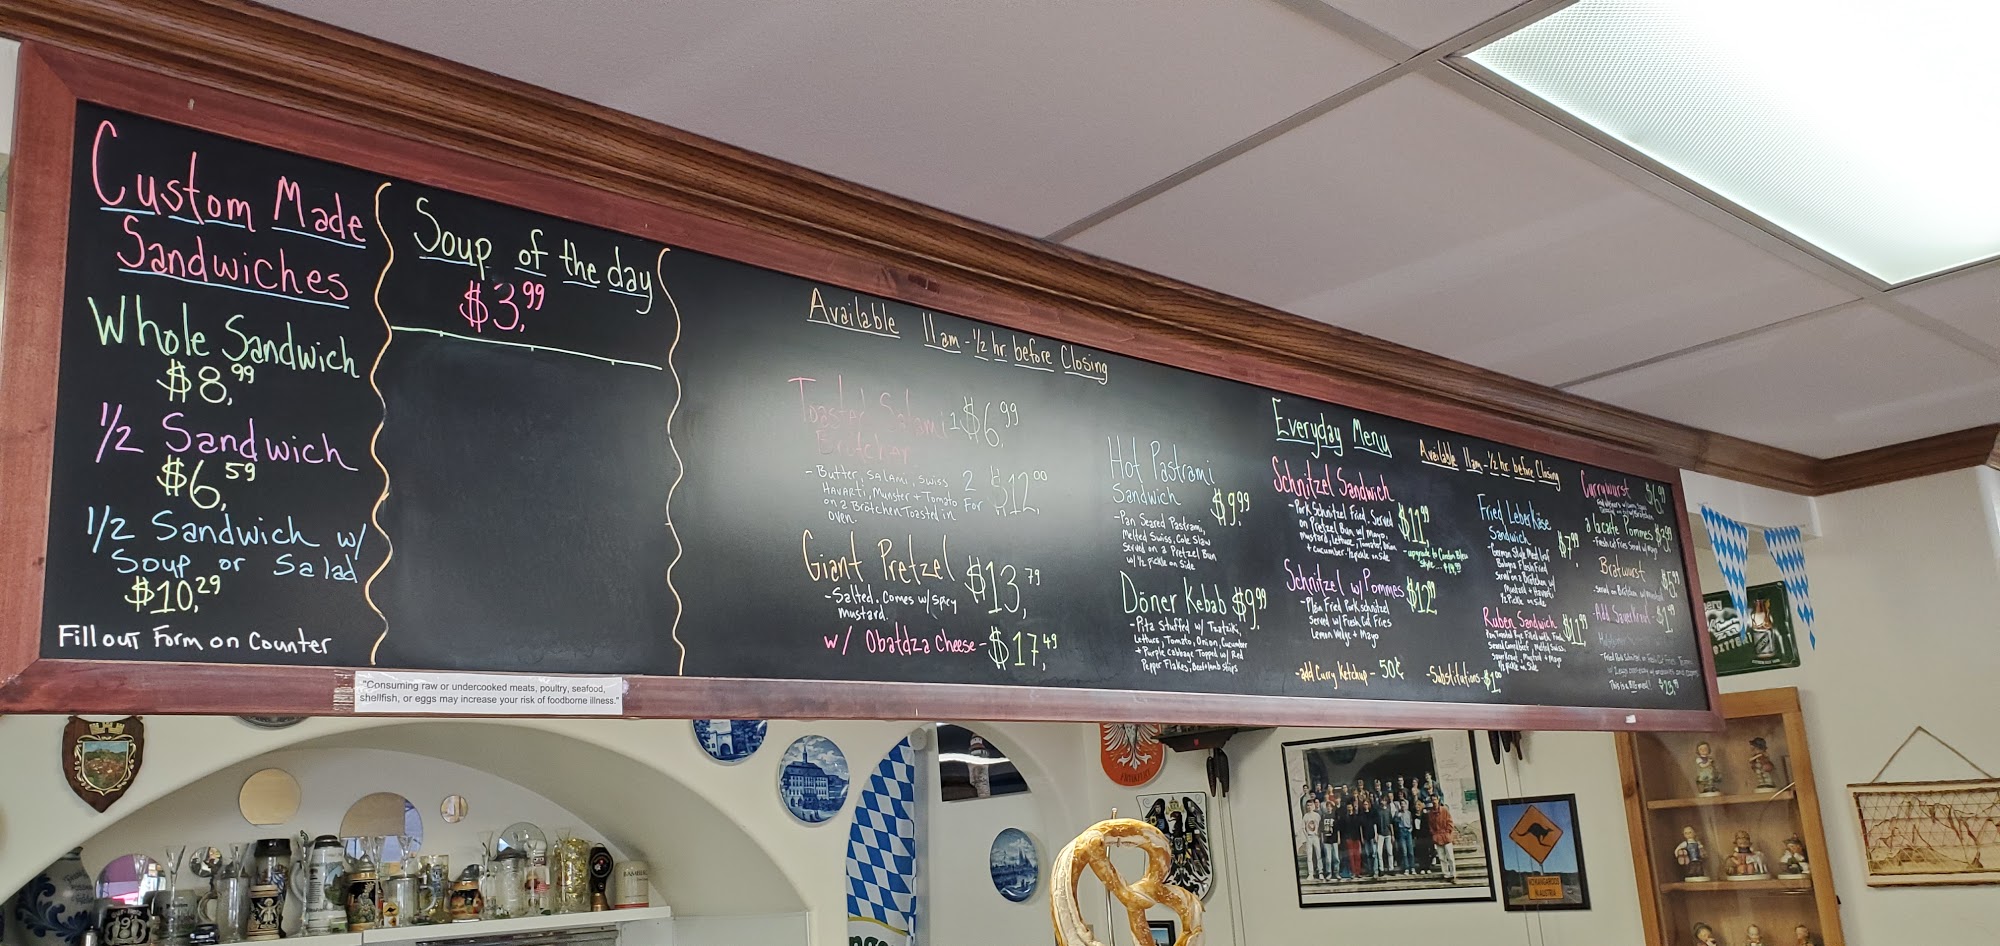 Custom Made
Sandwiches
Whole Sandwich
$8.99
1/2 Sandwich
$6.59
1/2 Sandwich w/
Soup or Salad
$10.29
Fill out Form on Counter
Soup of the day
$3.99
Available 11am - 1/2 hr. before Closing
Toasted Salami 1 $6.99
Brötchen
- Butter, Salami, Swiss
Havarti, Munster + Tomato
on 2 Brötchen Toasted in
oven.
2 For $12.00
Giant Pretzel $13.79
- Salted. Comes w/ Spicy
mustard.
w/ Obatdza Cheese - $17.49
Hot Pastrami
Sandwich $9.99
- Pan Seared Pastrami,
Melted Swiss, Cole Slaw
Served on a Pretzel Bun
w/ 1/2 pickle on Side
Döner Kebab $9.99
- Pita Stuffed w/ Tzatziki,
Lettuce, Tomato, Onion, Cucumber
+ Purple Cabbage Topped w/ Red
Pepper Flakes, Beef+lamb strips
Everyday Menu
Available 11am - 1/2 hr. before Closing
Schnitzel Sandwich $11.99
- Pork Schnitzel Fried, Served
on Pretzel Bun w/ Mayo,
Mustard, Lettuce, Tomato, Onion
+ cucumber. 1/2 pickle on Side
- upgrade to Cordon Bleu
Style
Schnitzel w/ Pommes $12.99
- Plain Fried Pork Schnitzel
Served w/ Fresh Cut Fries
Lemon Wedge + Mayo
- add Curry Ketchup - 50¢
- Substitutions - $1.00
Fried Leberkäse
Sandwich $7.99
- German Style Meat loaf
Bologna Flash Fried
Served on a Brötchen w/
Mustard + Havarti
1/2 Pickle on Side
Ruben Sandwich $11.99
Served Corned Beef, Melted Swiss,
Sauerkraut, Mustard + Mayo
1/2 pickle on Side
Currywurst $6.99
Pommes $3.99
- Fresh Cut Fries Served w/ Mayo
Bratwurst $5.99
- Served on Brötchen w/ Mustard
- Add Sauerkraut - $1.99
This is a BIG meal!
"Consuming raw or undercooked meats, poultry, seafood,
shellfish, or eggs may increase your risk of foodborne illness."
FRANKFURT
BAMBERG